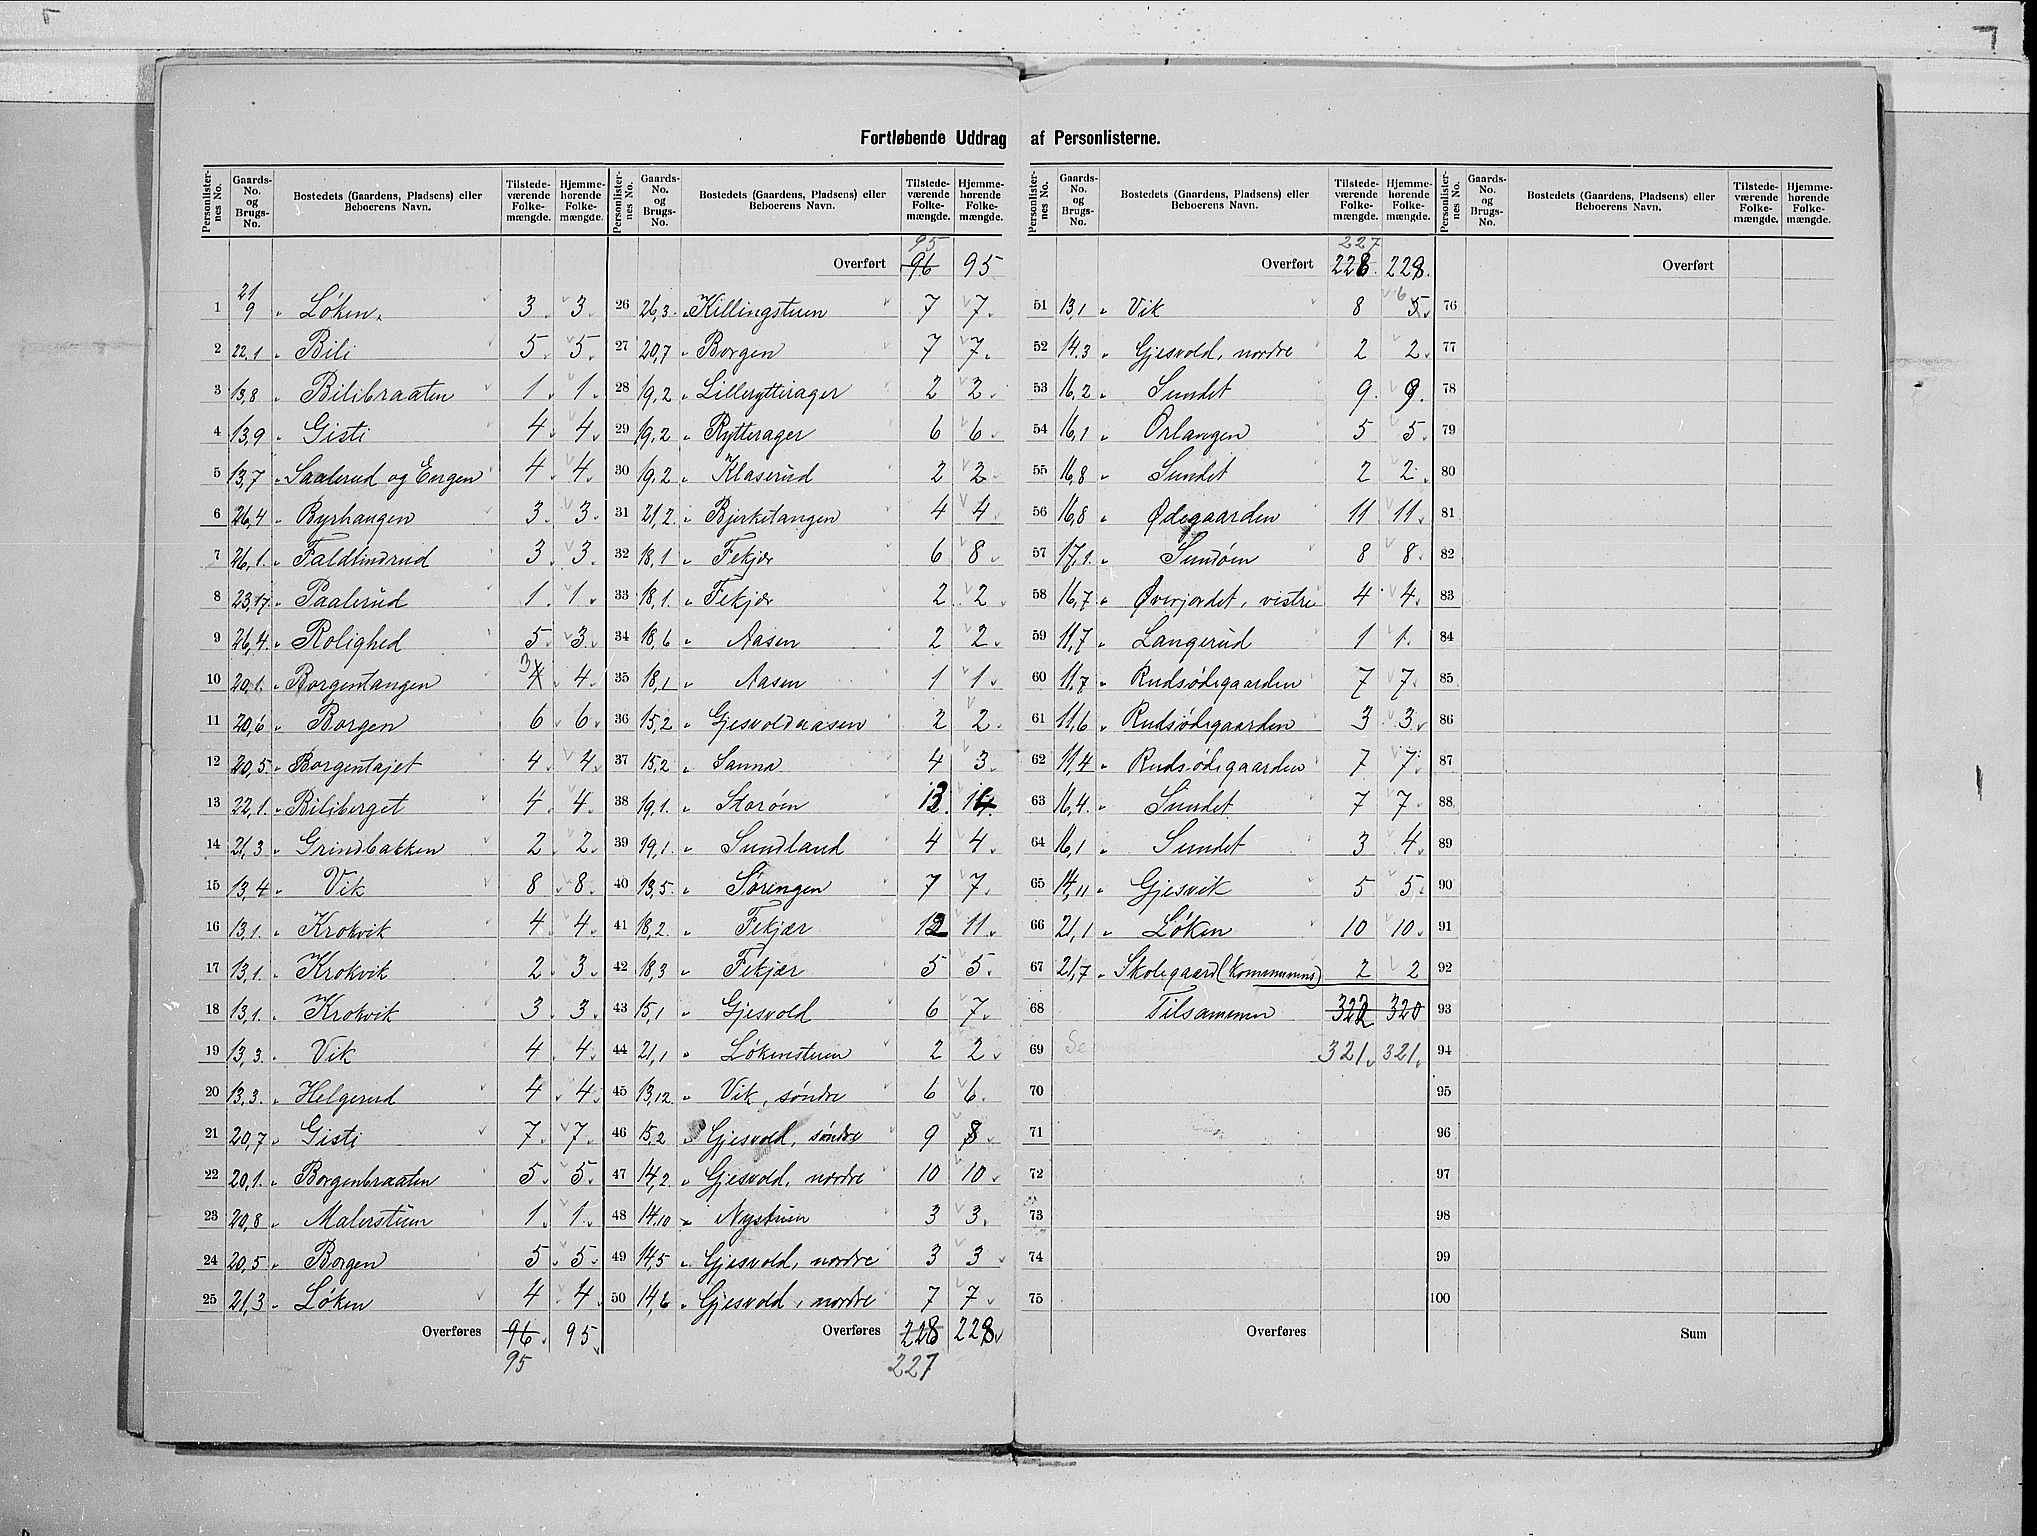 Fortløbende Uddrag af Personlisterne.
Personlisternes No. Gaards-No. og Brugs-No. Bostedets (Gaardens, Pladsens) eller Beboerens Navn. Tilstedeværende Folkemængde. Hjemmehørende Folkemængde.
1 21 9 " Løken 3 3
2 22,1 " Bili 5 5
3 13,8 " Bilibraaten 1 1
4 13,9 " Gisti 4 4
5 13,7 " Saalerud og Engen 4 4
6 26,4 " Byrhaugen 3 3
7 26,1 " Faldlindrud 3 3
8 23,17 " Paalerud 1 1
9 26,4 " Rolighed 5 3
10 20,1 " Borgentangen 3 4 4
11 20,6 " Borgen 6 6
12 20,5 " Borgentajet 4 4
13 22,1 " Biliberget 4 4
14 21,3 " Grindbakken 2 2
15 13,4 " Vik 8 8
16 13,1 " Krokvik 4 4
17 13,1 " Krokvik 2 3
18 13,1 " Krokvik 3 3
19 13,3 " Vik 4 4
20 13,3 " Helgerud 4 4
21 20,7 " Gisti 7 7
22 20,1 " Borgenbraaten 5 5
23 20,8 " Malerstuen 1 1
24 20,5 " Borgen 5 5
25 21,3 " Løken 4 4
Overføres 96 95
95
Personlisternes No. Gaards-No. og Brugs-No. Bostedets (Gaardens, Pladsens) eller Beboerens Navn. Tilstedeværende Folkemængde. Hjemmehørende Folkemængde.
95
Overført 96 95
26 26,3 " Killingstuen 7 7
27 20,7 " Borgen 7 7
28 19,2 " Lillerytterager 2 2
29 19,2 " Rytterager 6 6
30 19,2 " Klaserud 2 2
31 21,2 " Bjerketangen 4 4
32 18,1 " Fekjær 6 8
33 18,1 " Fekjær 2 2
34 18,6 " Aasen 2 2
35 18,1 " Aasen 1 1
36 15,2 " Gjesvoldaasen 2 2
37 15,2 " Sanna 4 3
38 19,1 " Storøen 12 14
39 19,1 " Sundland 4 4
40 13,5 " Sørengen 7 7
41 18,2 " Fekjær 12 11
42 18,3 " Fekjær 5 5
43 15,1 " Gjesvold 6 7
44 21,1 " Løkenstuen 2 2
45 13,12 " Vik, søndre 6 6
46 15,2 " Gjesvold, søndre 9 8
47 14,2 " Gjesvold, nordre 10 10
48 14,10 " Nystuen 3 3
49 14,5 " Gjesvold, nordre 3 3
50 14,6 " Gjesvold, nordre 7 7
Overføres 228 228
227
Personlisternes No. Gaards-No. og Brugs-No. Bostedets (Gaardens, Pladsens) eller Beboerens Navn. Tilstedeværende Folkemængde. Hjemmehørende Folkemængde.
227
Overført 228 228
51 13,1 " Vik 8 6 5
52 14,3 " Gjesvold, nordre 2 2
53 16,2 " Sundet 9 9
54 16,1 " Ørlangen 5 5
55 16,8 " Sundet 2 2
56 16,8 " Ødegaarden 11 11
57 17,1 " Sundøen 8 8
58 16,7 " Øverjordet, vestre 4 4
59 11,7 " Langerud 1 1
60 11,7 " Rudsødegaarden 7 7
61 11,6 " Rudsødegaarden 3 3
62 11,4 " Rudsødegaarden 7 7
63 16,4 " Sundet 7 7
64 16,1 " Sundet 3 4
65 14,11 " Gjesvik 5 5
66 21,1 " Løken 10 10
67 21,7 " Skolegaard (Kommunens) 2 2
68 Tilsammen 322 320
69 321 321
70
71
72
73
74
75
Overføres
Personlisternes No. Gaards-No. og Brugs-No. Bostedets (Gaardens, Pladsens) eller Beboerens Navn. Tilstedeværende Folkemængde. Hjemmehørende Folkemængde.
Overført
76
77
78
79
80
81
82
83
84
85
86
87
88
89
90
91
92
93
94
95
96
97
98
99
100
Sum